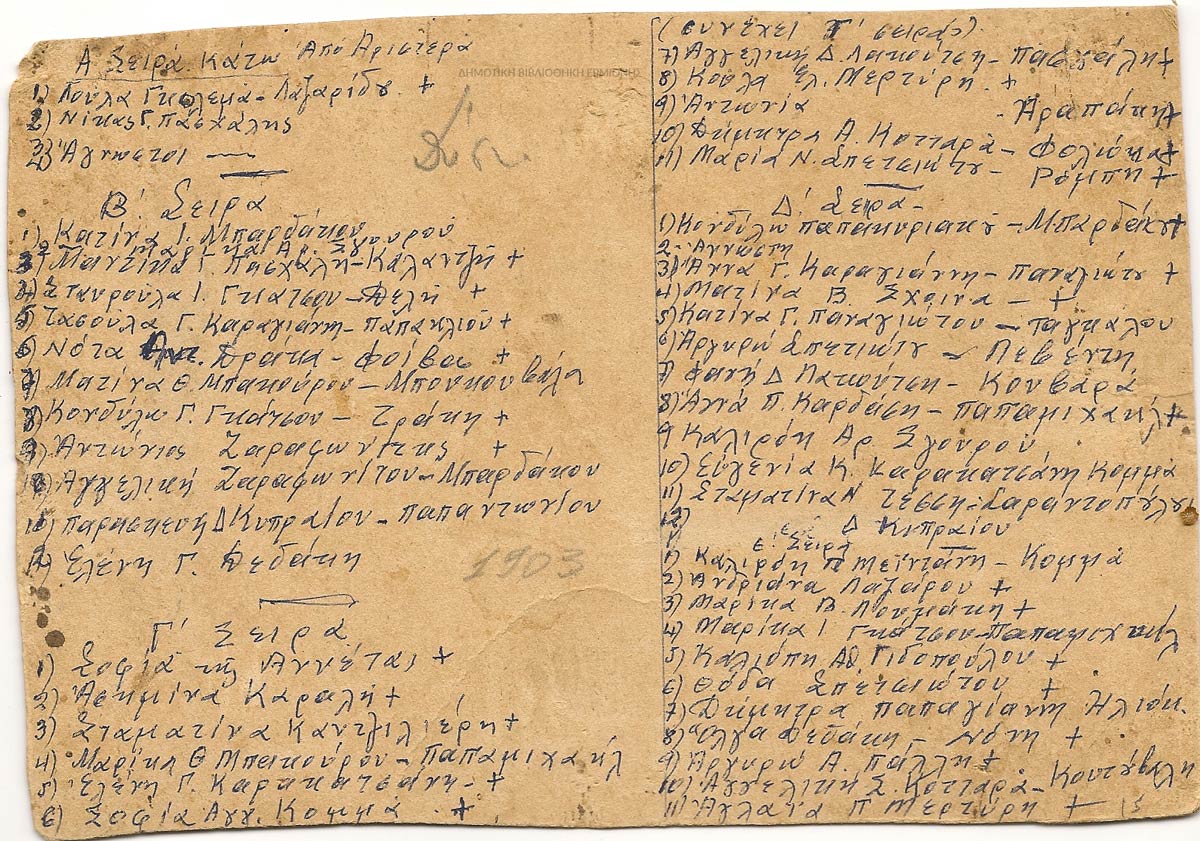 Α Σειρά Κάτω Από Αριστερά
ΔΗΜΟΤΙΚΗ ΒΙΒΛΙΟΘΗΚΗ ΕΡΜΙΟΝΗΣ
1) Λούλα Γκολεμα - Λαζαρίδου. +
2) Νίκος Γ. Πασχάλης
3) Άγνωστοι
Β΄. Σειρά
1) Κατίνα Ι. Μπαρδάκου
2 Μαρίκα Αρ. Σγουρού
3) Ματίνα Γ. Πασχάλη - Καλαντζή +
4) Σταυρούλα Ι. Γκάτσου - Δελή +
5 Τασούλα Γ. Καραγιάνη - Παπακλιού +
6) Νότα Αντ. Πράτκα - Φοίβα +
7) Ματίνα Θ. Μπακούρου - Μπουκουβάλα
8) Κονδύλω Γ. Γκάτσου - Τράκη +
9) Αντώνιος Ζαραφωνίτης +
10) Αγγελική Ζαραφωνίτου - Μπαρδάκου
11) Παρασκευή Δ Κυπραίου - Παπαντωνίου
Ελένη Γ. Δεδάκη
1903
Γ΄ Σειρά
1) Σοφία της Αννέτας +
2) Ασημίνα Καραλή +
3) Σταματίνα Καντζιλιέρη +
4) Μαρίκα Θ Μπακούρου - Παπαμιχαήλ
5) Ελένη Γ. Καρακατσάνη - +
6) Σοφία Αγγ. Κομμα . +
(συνέχεια Γ΄ σειράς).
7) Αγγελική Δ. Λακούτση - Πασχάλη +
8) Κούλα Ελ. Μερτύρη. +
9) Αντωνία - Αραπάκη +
10) Δήμητρα Α. Κοτταρά - Φολιόκα +
11) Μαρία Ν. Σπετσιώτου - Ρόμπη +
Δ΄. Σειρά -
1) Κονδύλω Παπακυριακού - Μπαρδάκου +
2 - Άγνωστη
3) Άννα Γ. Καραγιάννη - Παναγιώτου +
4) Ματίνα Β. Σχοινα - +
5) Κατίνα Γ. Παναγιώτου - Ταγκάλου
6) Αργυρώ Σπετιώτου - Λεβέντη
7) Φανή Δ Λακούτση - Κουβαρά
8) Άννα Π. Καρδάση - Παπαμιχαήλ +
9 Καλιρόη Αρ. Σγουρού
10) Ευγενία Κ. Καρακατσάνη Κομμά
11) Σταματίνα Ν Τέσση - Σαραντοπούλου
12) Δ Κυπραίου
Ε΄ Σειρά
1) Καλιρόη Π Μεϊντάνη - Κομμά
2) Ανδριάνα Λαζάρου +
3) Μαρίκα Β. Λουμάκη +
4) Μαρίκα Ι Γκάτσου - Παπαμιχαήλ
5) Καλιόπη Αθ Γιδοπούλου +
6) Θόδα Σπετσιώτου +
7) Δήμητρα Παπαγιάννη Ηλιόκ.
8) Όλγα Δεδάκη - Νόνη +
9) Αργυρώ Α. Παλλη +
10) Αγγελική Σ. Κοτταρά - Κουτούβαλη
11) Αγλαΐα Π Μερτύρη +